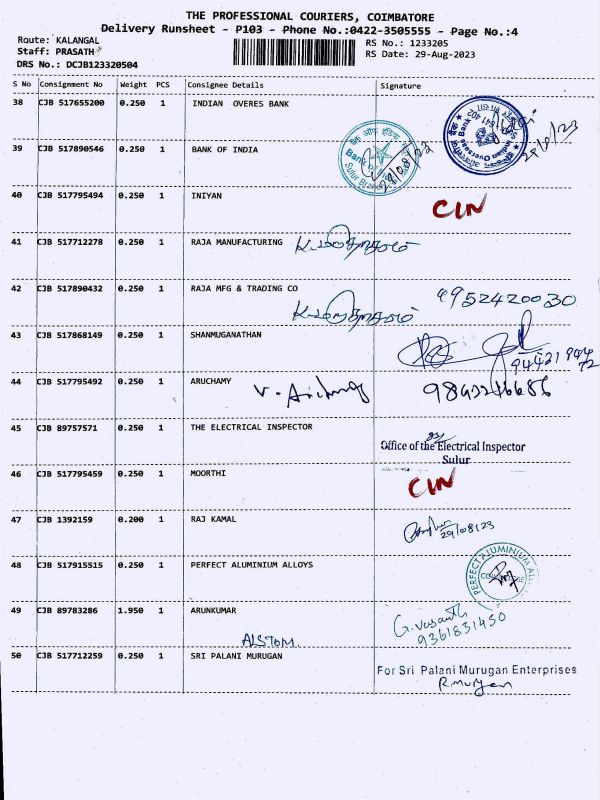 THE PROFESSIONAL COURIERS, COIMBATORE
Delivery Runsheet - P103 - Phone No.:0422-3505555 - Page No.:4
Route: KALANGAL
RS No.: 1233205
Staff: PRASATH
RS Date: 29-Aug-2023
DRS No.: DCJB123320504
S No Consignment No Weight PCS Consignee Details Signature
38 CJB 517655200 0.250 1 INDIAN OVERES BANK
39 CJB 517890546 0.250 1 BANK OF INDIA
40 CJB 517795494 0.250 1 INIYAN
CIN
41 CJB 517712278 0.250 1 RAJA MANUFACTURING
42 CJB 517890432 0.250 1 RAJA MFG & TRADING CO
9952420030
43 CJB 517868149 0.250 1 SHANMUGANATHAN
44 CJB 517795492 0.250 1 ARUCHAMY
45 CJB 89757571 0.250 1 THE ELECTRICAL INSPECTOR
Office of the Electrical Inspector
Sulur
46 CJB 517795459 0.250 1 MOORTHI
CIN
47 CJB 1392159 0.200 1 RAJ KAMAL
29/08/23
48 CJB 517915515 0.250 1 PERFECT ALUMINIUM ALLOYS
PERFECT ALUMINIUM
49 CJB 89783286 1.950 1 ARUNKUMAR
G. Vasanth
9361831450
ALSTOM.
50 CJB 517712259 0.250 1 SRI PALANI MURUGAN
For Sri Palani Murugan Enterprises